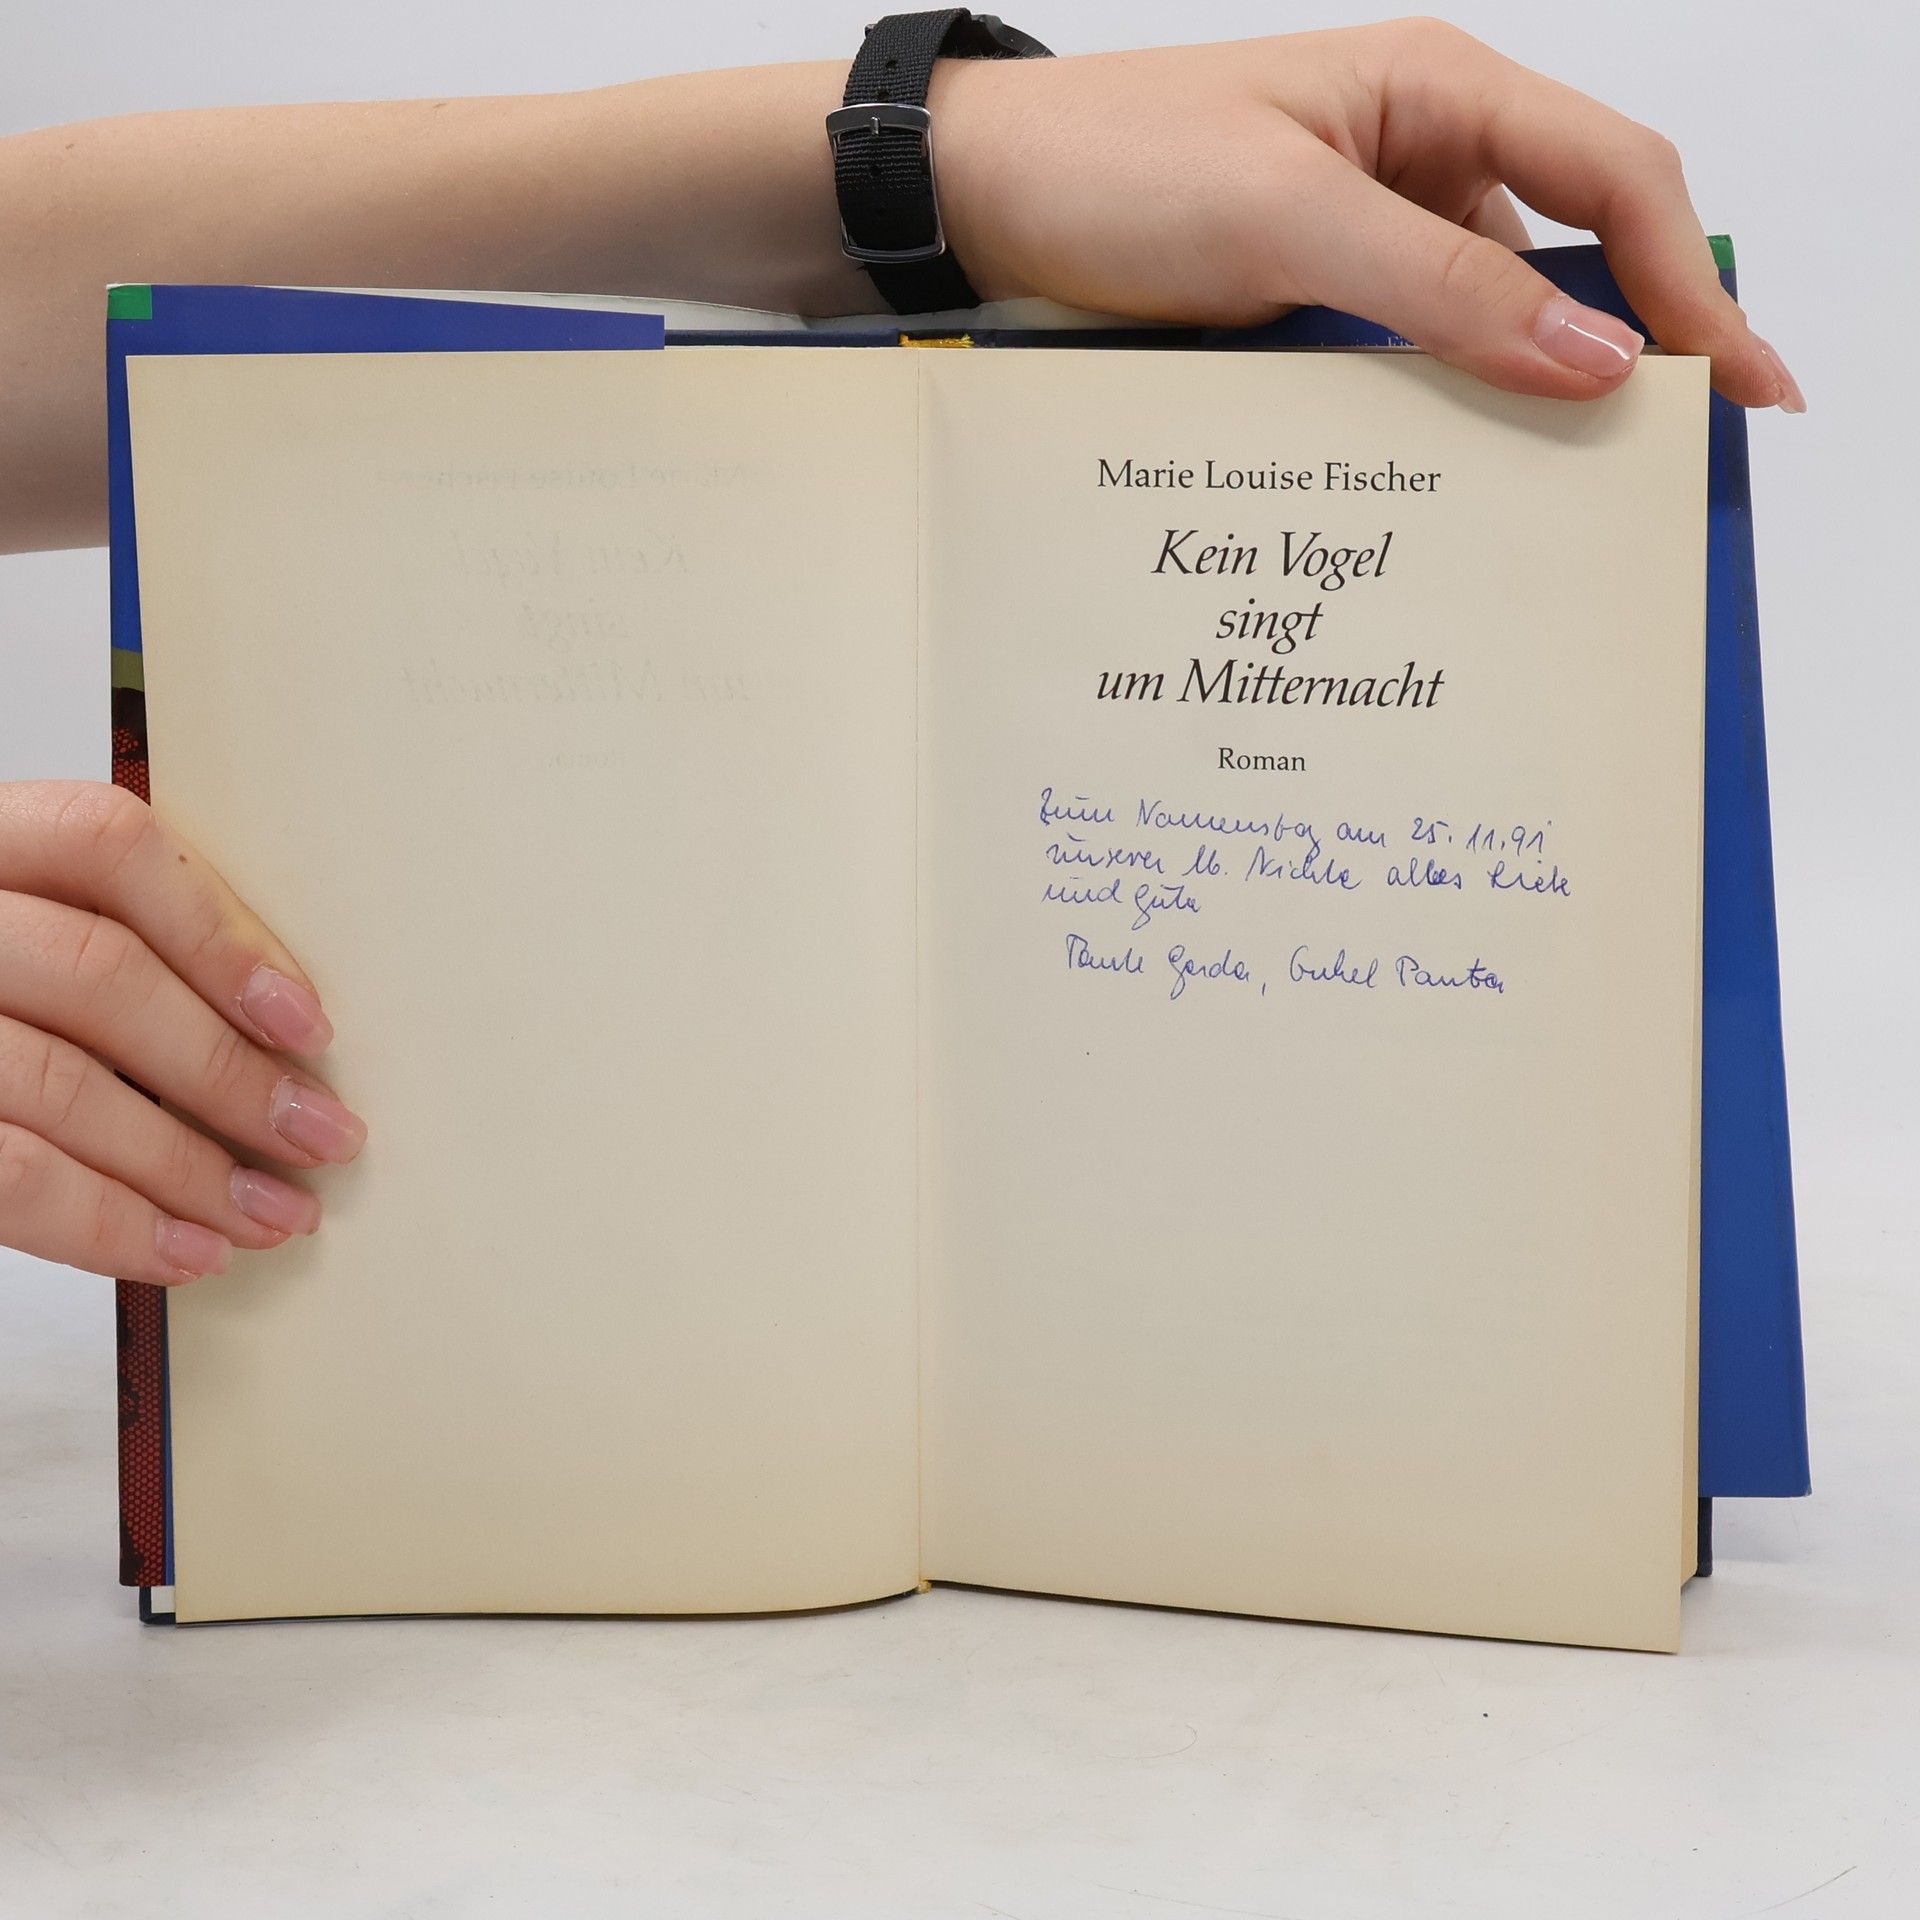 Marie Louise Fischer
Kein Vogel
singt
um Mitternacht
Roman
Zum Namenstag am 25.11.91
unserer lb. Nichte alles Liebe
und Gute
Tante Gerda, Onkel